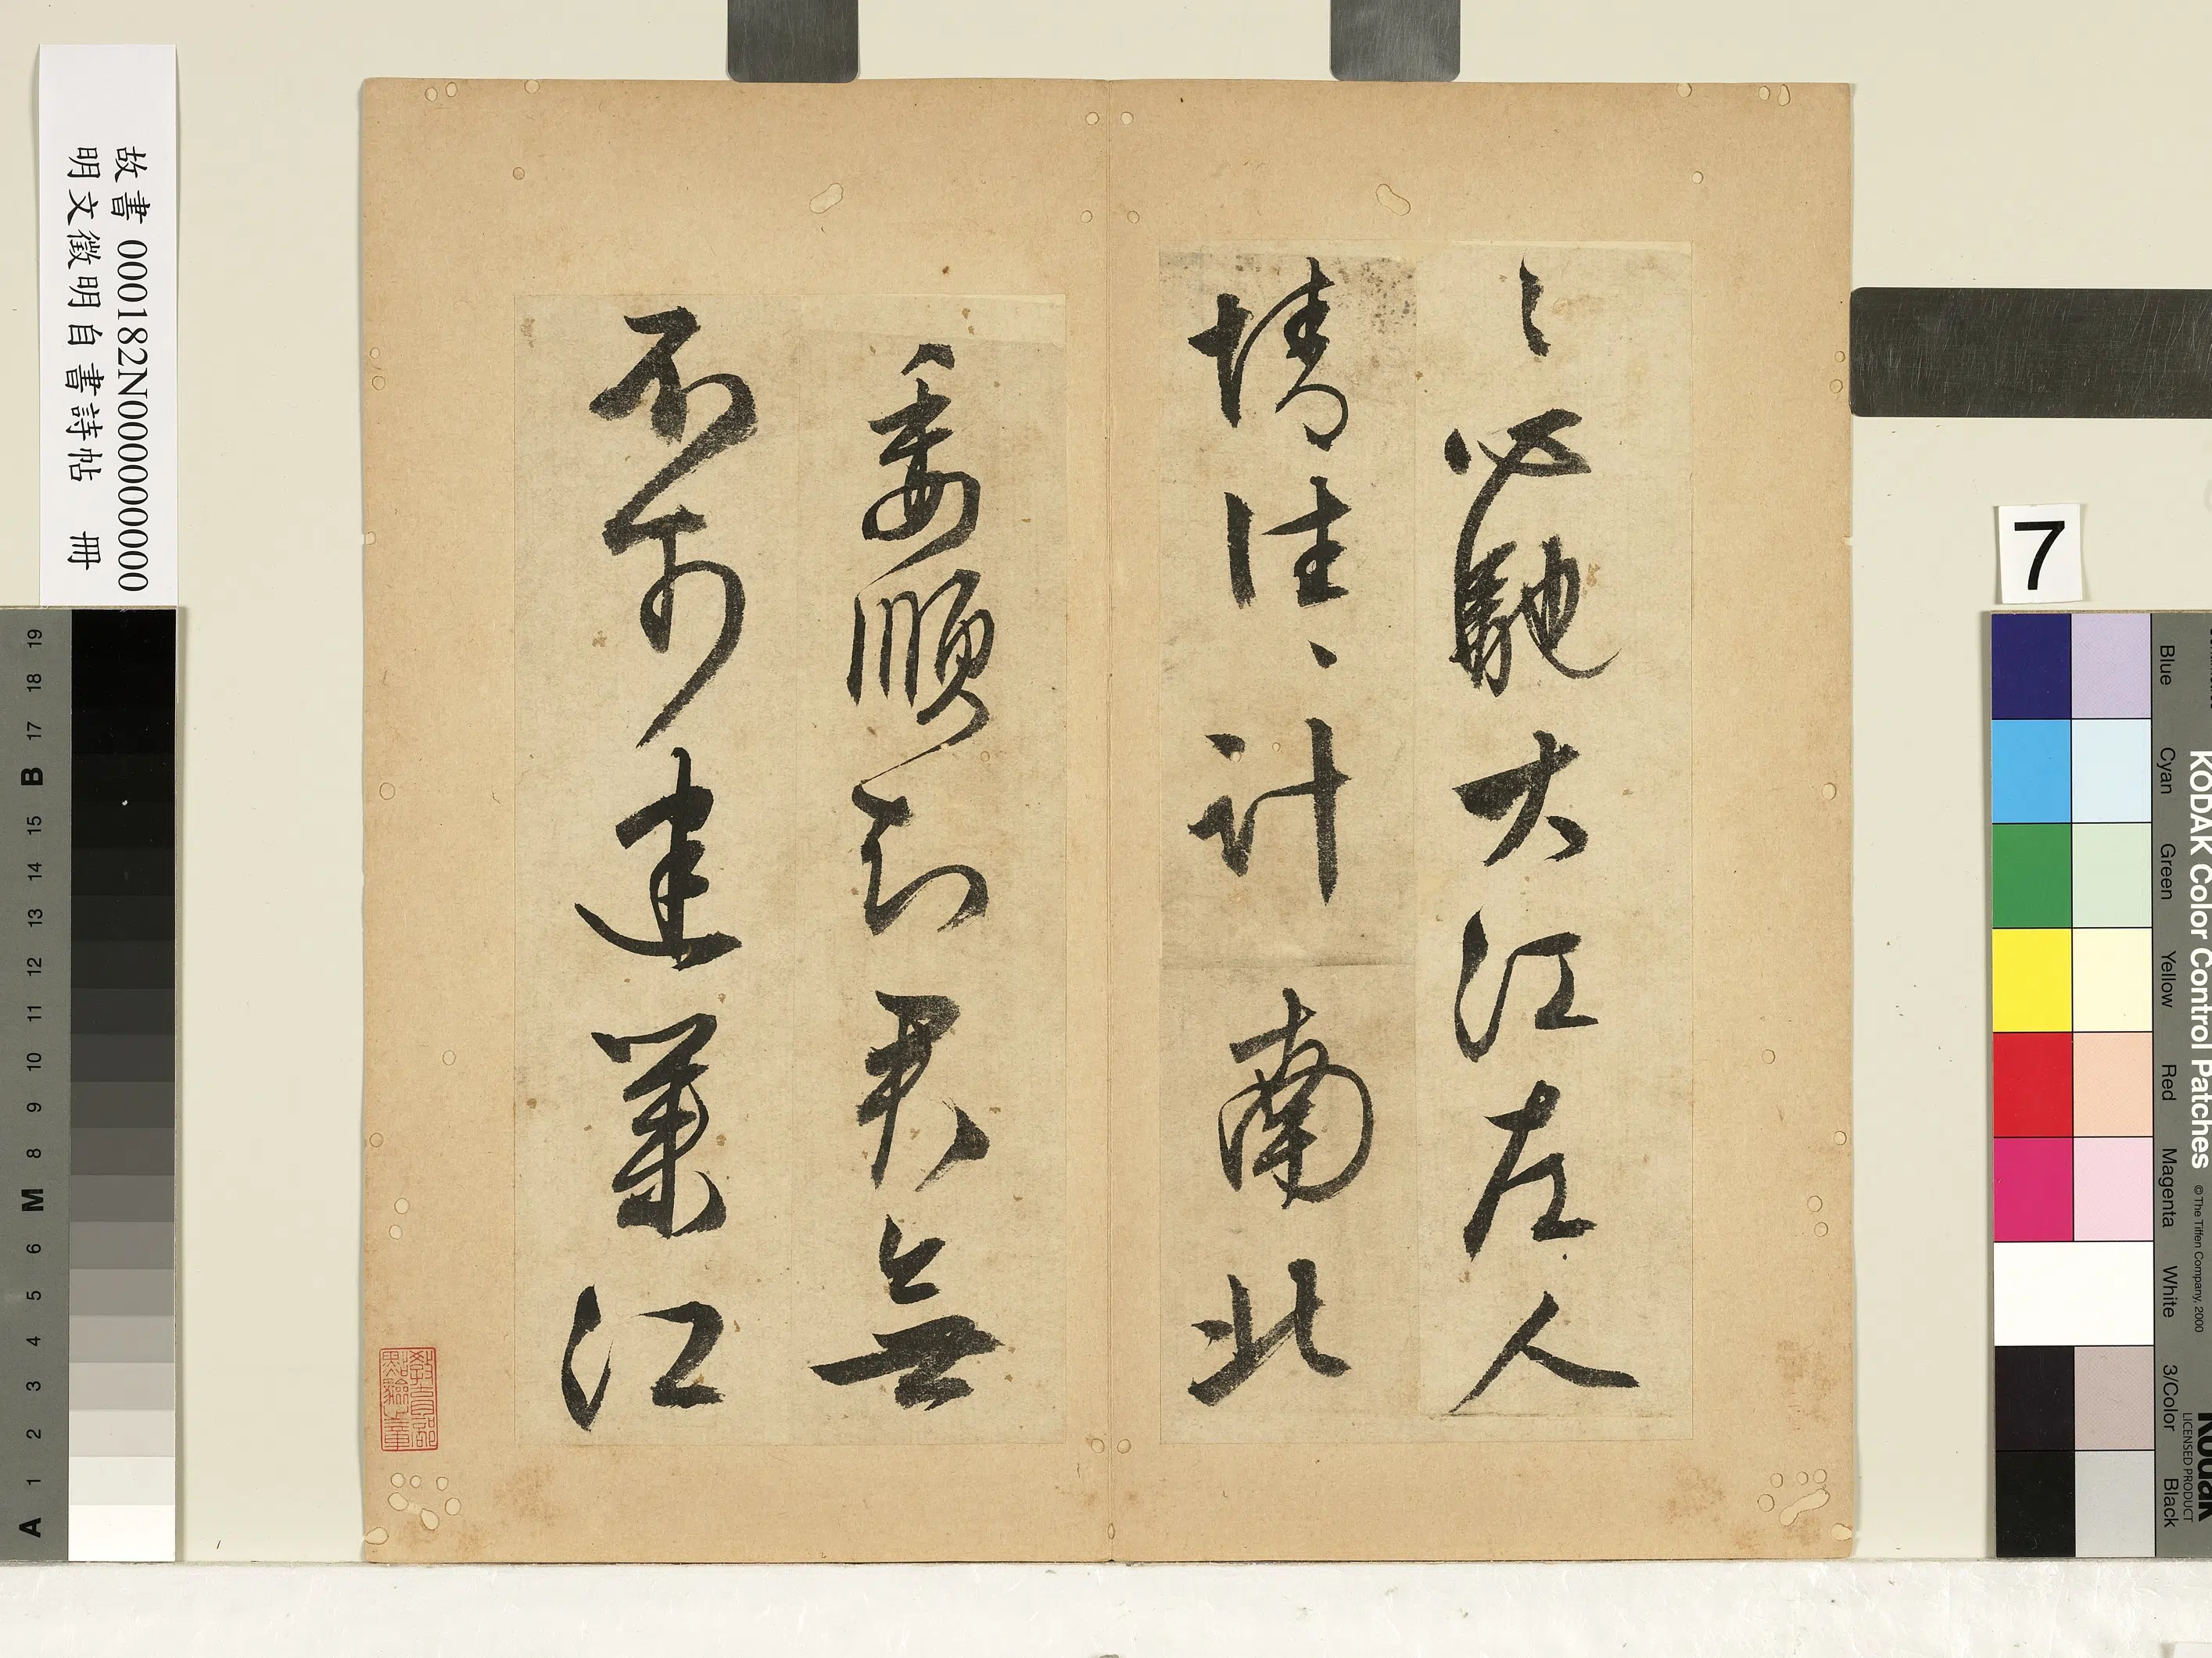 〻必馳大江左人
情往〻計南北
委順知君無
不可建業江
教育部點驗之章
故書 000182N000000000
明文徵明自書詩帖 冊
7
KODAK Color Control Patches
© The Tiffen Company, 2000
Kodak
LICENSED PRODUCT
Blue
Cyan
Green
Yellow
Red
Magenta
White
3/Color
Black
A 1 2 3 4 5 6 M 8 9 10 11 12 13 14 15 B 17 18 19